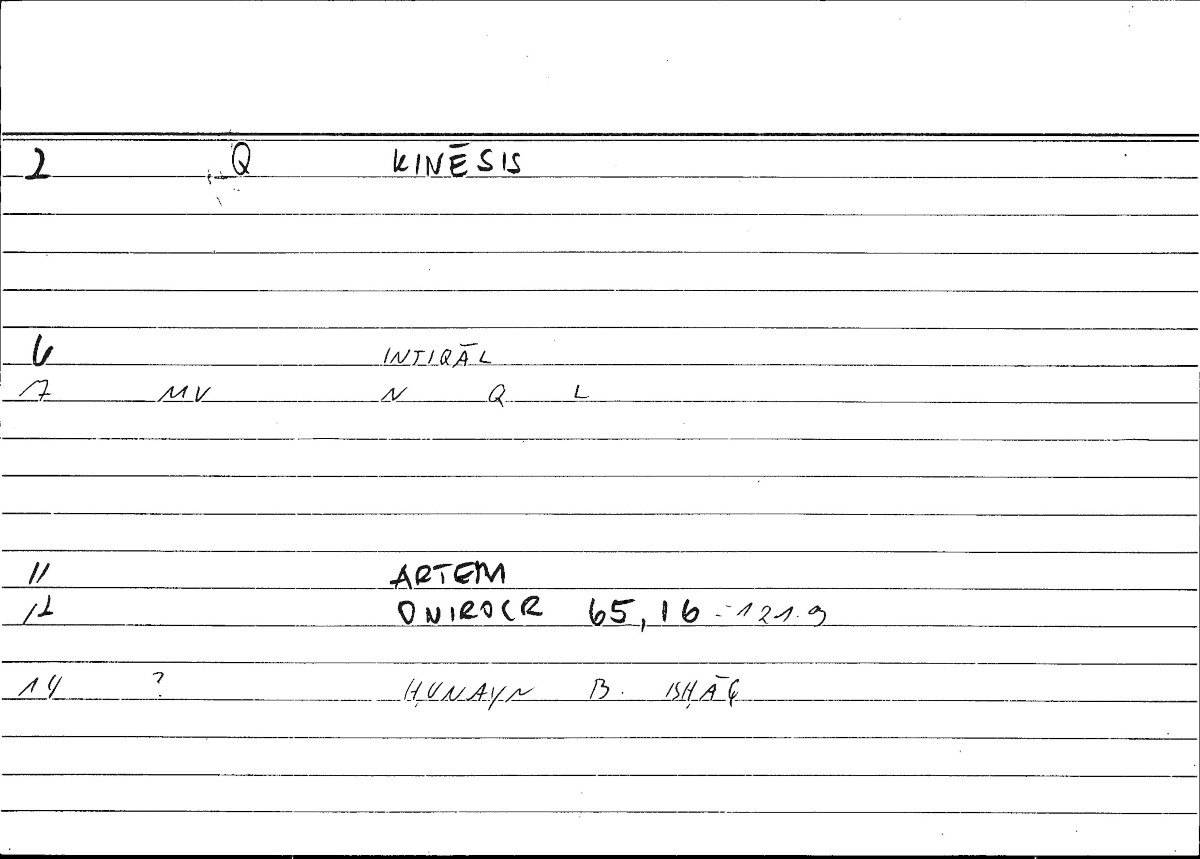 2 Q KINĒSIS
6 INTIQĀL
7 MV N Q L
11 ARTEM
12 ONIROCR 65,16 - 121.9
14 ? ḤUNAYN B. ISḤĀQ